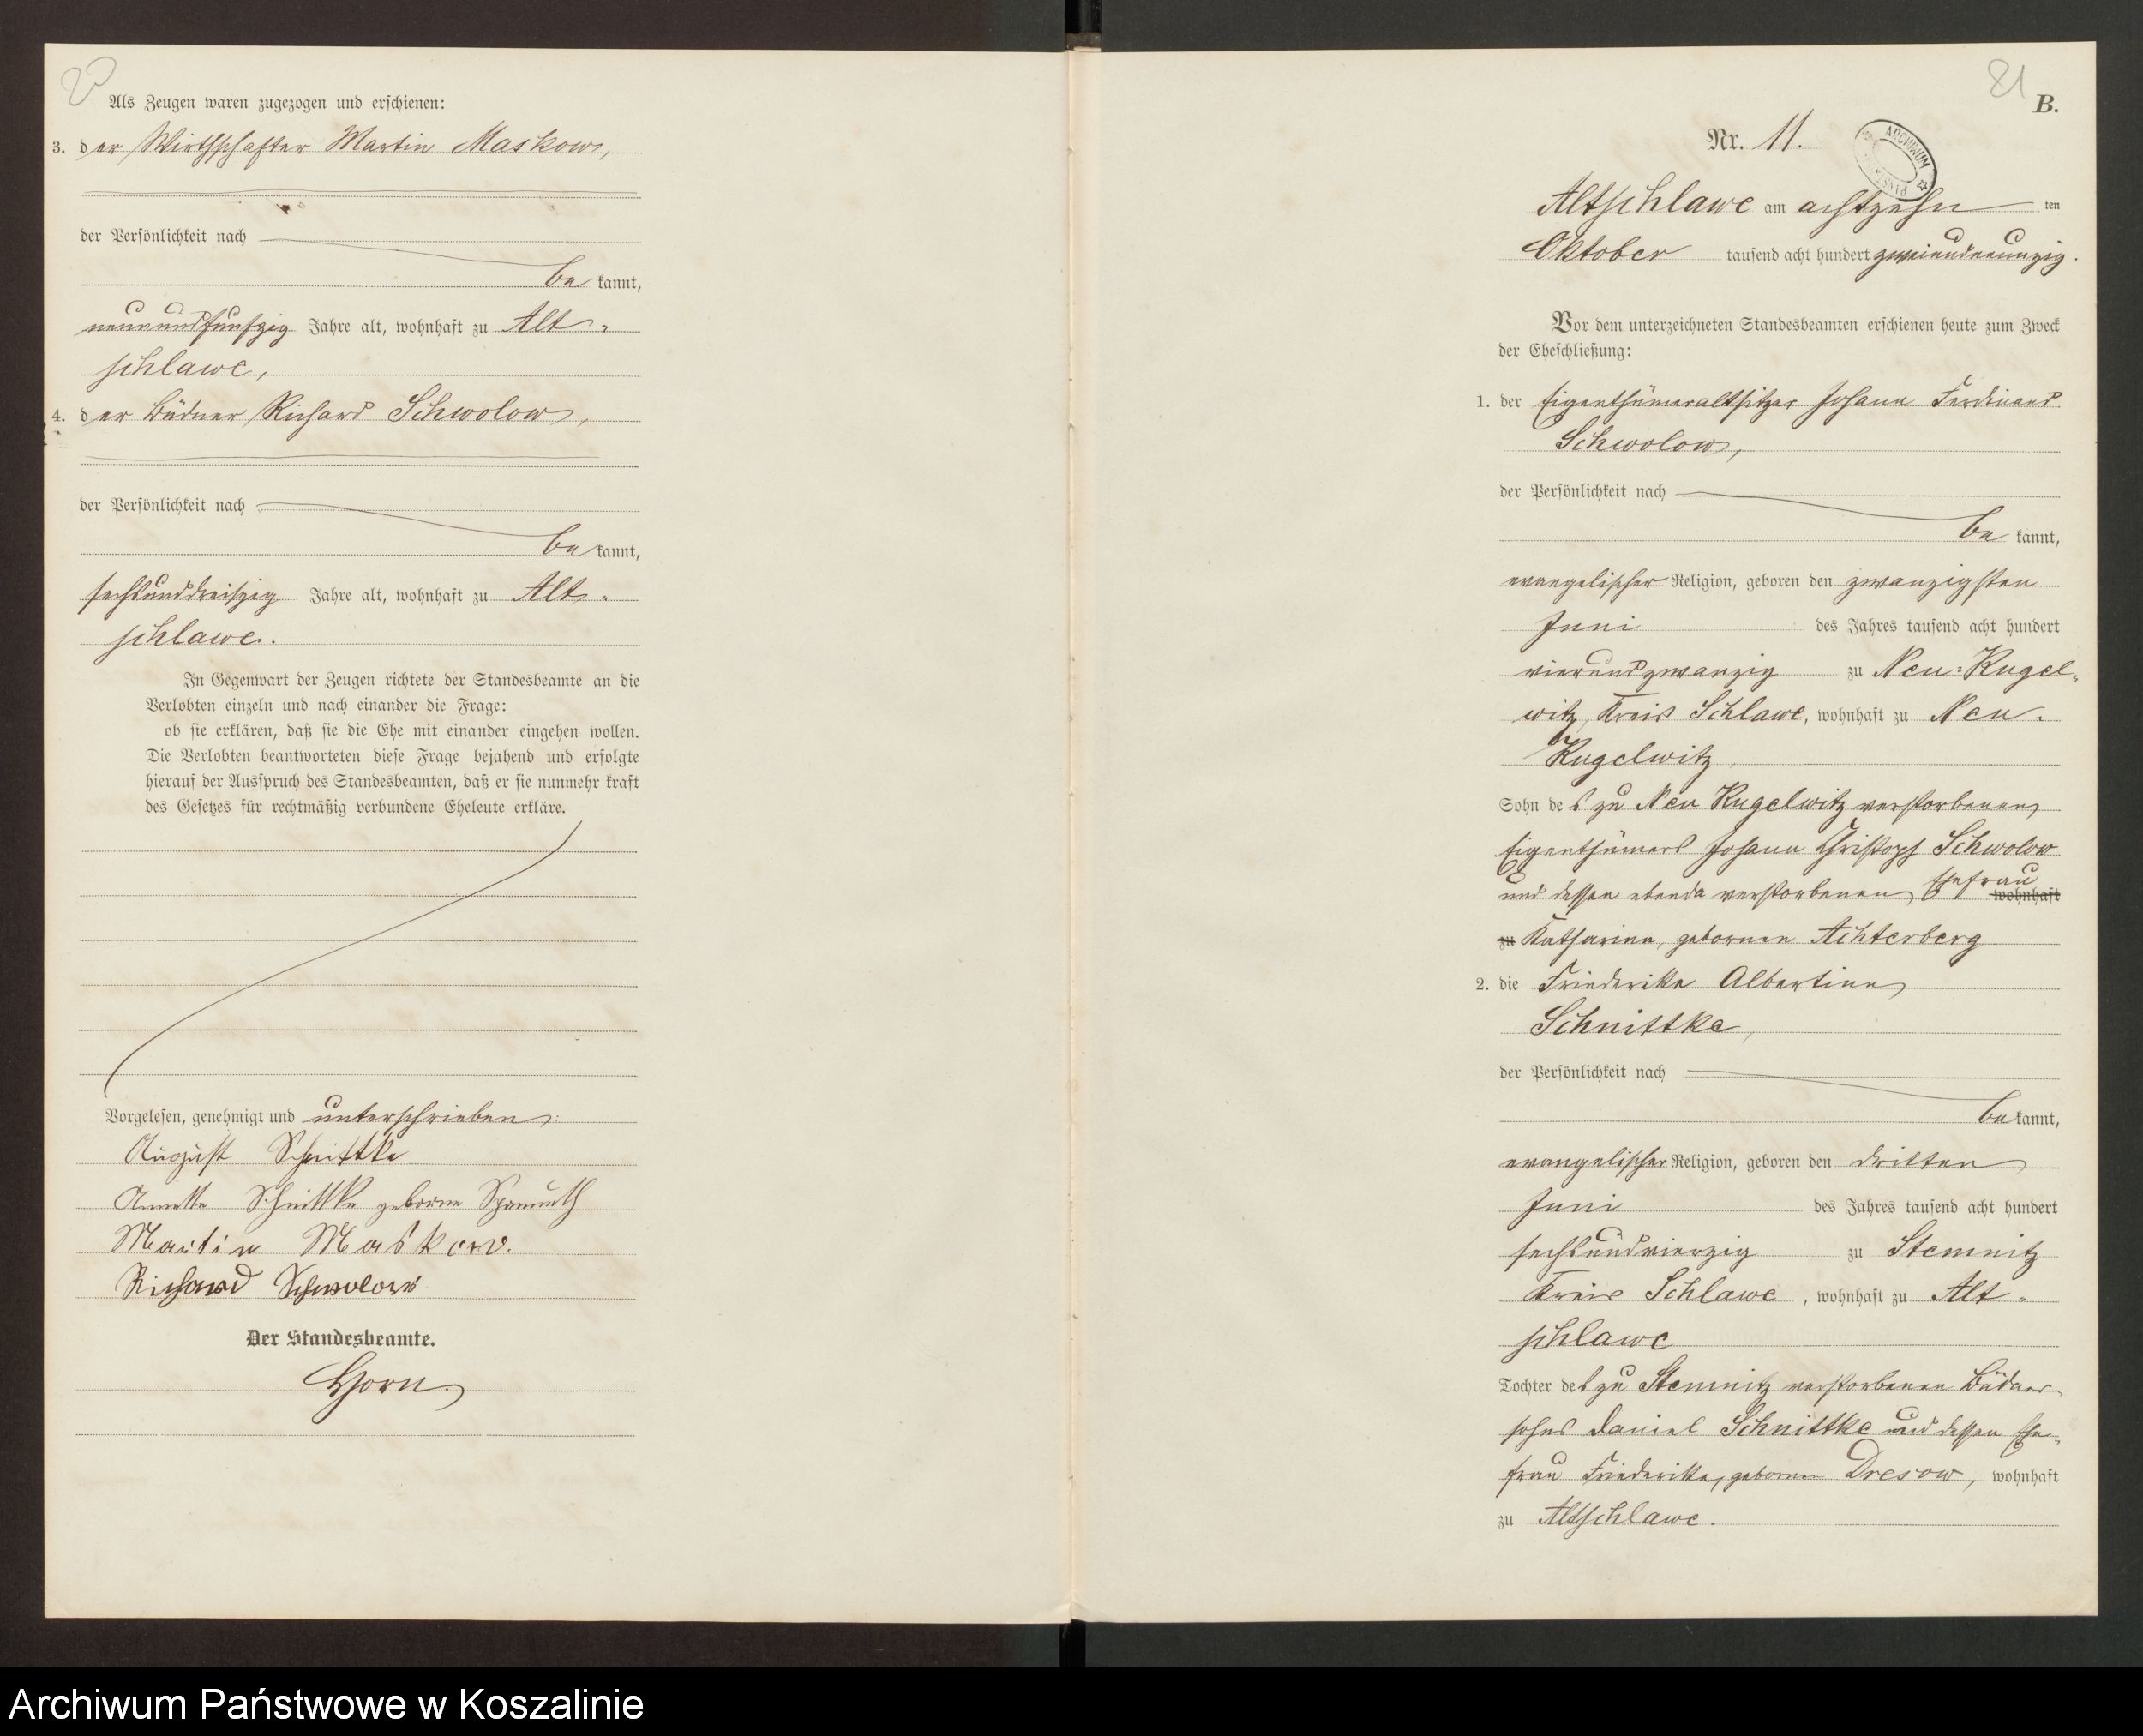 20
Als Zeugen waren zugezogen und erschienen:
3. der Wirthschafter Martin Maskow,
der Persönlichkeit nach
bekannt,
neunundfunfzig Jahre alt, wohnhaft zu Alt-
schlawe,
4. der Büdner Richard Schwolow,
der Persönlichkeit nach
bekannt,
sechsunddreiszig Jahre alt, wohnhaft zu Alt-
schlawe.
In Gegenwart der Zeugen richtete der Standesbeamte an die
Verlobten einzeln und nach einander die Frage:
ob sie erklären, daß sie die Ehe mit einander eingehen wollen.
Die Verlobten beantworteten diese Frage bejahend und erfolgte
hierauf der Ausspruch des Standesbeamten, daß er sie nunmehr kraft
des Gesetzes für rechtmäßig verbundene Eheleute erkläre.
Vorgelesen, genehmigt und unterschrieben:
August Schnittke
Schnittke geborne
Martin Maskow.
Richard Schwolow
Der Standesbeamte.
Horn.
21
B.
Nr. 11.
ARCHIWUM
Altschlawe am achtzehnten
Oktober tausend acht hundert zweiundneunzig.
Vor dem unterzeichneten Standesbeamten erschienen heute zum Zweck
der Eheschließung:
1. der Eigenthümeraltsitzer Johann Ferdinand
Schwolow,
der Persönlichkeit nach
bekannt,
evangelischer Religion, geboren den zwanzigsten
Juni des Jahres tausend acht hundert
vierundzwanzig zu Neu-Kugel-
witz, Kreis Schlawe, wohnhaft zu Neu-
Kugelwitz,
Sohn des zu Neu Kugelwitz verstorbenen
Eigenthümers Johann Christoph Schwolow
und dessen ebenda verstorbenen Ehefrau wohnhaft
zu Katharina, gebornen Achterberg
2. die Friederike Albertine
Schnittke,
der Persönlichkeit nach
bekannt,
evangelischer Religion, geboren den dritten
Juni des Jahres tausend acht hundert
sechsundvierzig zu Stemnitz
Kreis Schlawe, wohnhaft zu Alt-
schlawe
Tochter des zu Stemnitz verstorbenen Büdner-
sohns Daniel Schnittke und dessen Ehe-
frau Friederike, gebornen Dresow, wohnhaft
zu Altschlawe.
Archiwum Państwowe w Koszalinie